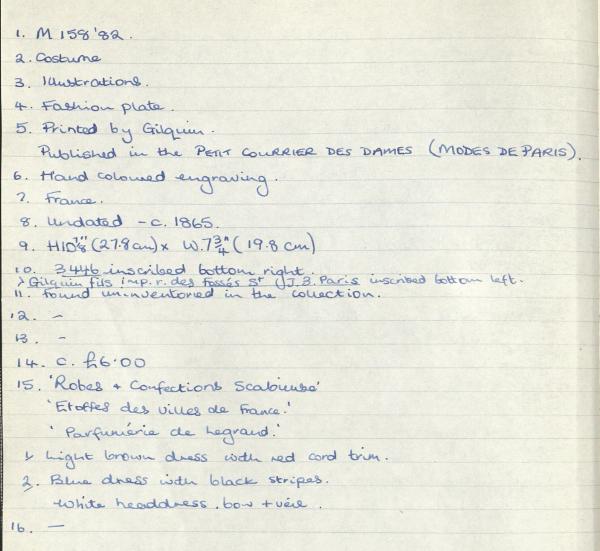 1. M 158'82.
2. Costume
3. Illustrations.
4. Fashion plate.
5. Printed by Gilquin.
Published in the PETIT COURRIER DES DAMES (MODES DE PARIS).
6. Hand coloured engraving.
7. France.
8. Undated - c. 1865.
9. H10 7/8" (27.8cm) x W.7 3/4" (19.8 cm)
10. 3446 inscribed bottom right.
Gilquin fils imp. r. des fossés St J.3. Paris inscribed bottom left.
11. Found uninventoried in the collection.
12. -
13. -
14. c. £6.00
15. 'Robes + Confections Scabieuse'
'Etoffes des villes de France.'
'Parfumérie de Legrand.'
1. Light brown dress with red cord trim.
2. Blue dress with black stripes.
White headdress. bow +
16. -